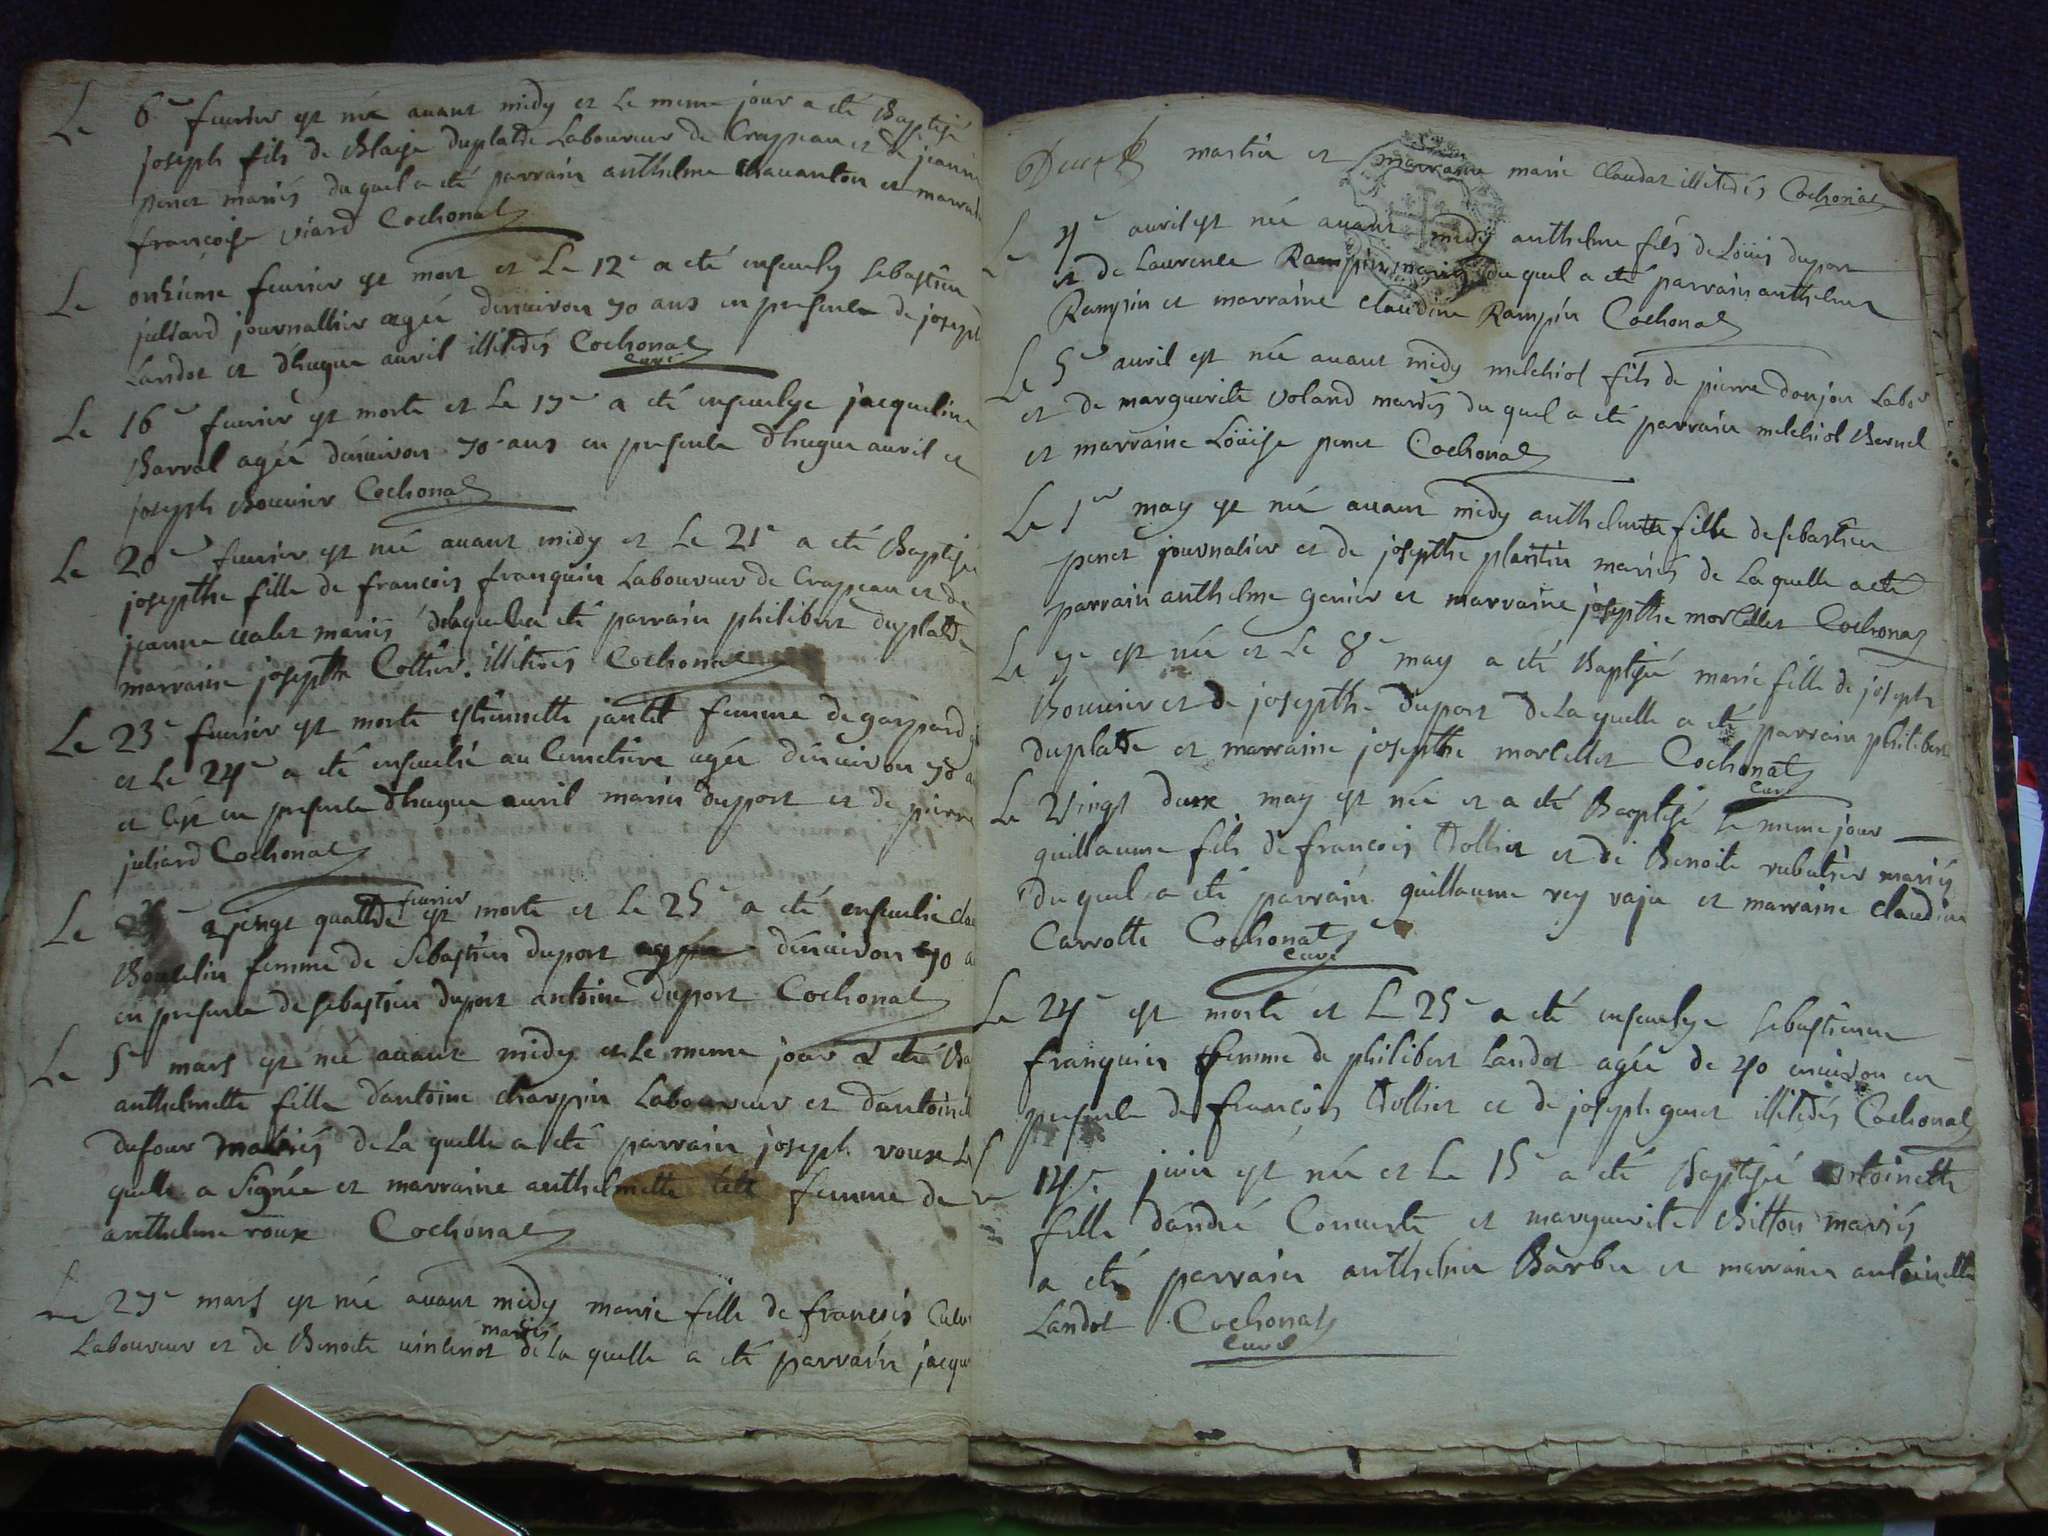 Le 6e feuvier est née auant midy et Le meme jour a eté Baptisé
joseph fils de Blaise duplatre Laboureur de Crappeau et de jeanne
penet mariés du quel a eté parrain anthelme chauanton et marraine
francoise viard Cochonat
Le onhiéme feuvier est mort et Le 12e a eté enseuely sebastien
juliard journallier agée dénuiron 70 ans en presence de joseph
Landot et d'hugue auril illitedés Cochonat
curé
Le 16e feuvier est morte et Le 17e a eté enseuelye jacqueline
Barral agée dénuiron 70 ans en presence d'hugue auril et
joseph Bouuier Cochonat
Le 20e feuvier est née auant midy et Le 21e a eté Baptisée
josepthe fille de francois franquin Laboureur de Crappeau et de
jeanne ualet mariés de laquelle a eté parrain philibert duplatre
marraine josepthe Cottier. illiteés Cochonat
Le 23e feuvier est morte estiennette jantet femme de gaspard
et Le 24e a eté enseuelie au Cimetiere agée dénuiron 70
et C'est en presence d'hugue auril marin duport et de pierre
juliard Cochonat
feuvier
Le vingt quattre est morte et Le 25e a eté enseuelie
femme de sebastien duport agée dénuiron 70
en presence de sebastien duport antoine duport Cochonat
Le 5e mars est née auant midy et Le meme jour a eté
anthelmette fille d'antoine charpin Laboureur et d'antoine
dufour mariés de La quelle a eté parrain joseph roux
quelle a signée et marraine anthelmette femme de
anthelme roux Cochonat
Le 27e mars est née auant midy marie fille de francois
mariés
Laboureur et de Benoite uincenot de La quelle a eté parrain
martin et marraine marie Claudat illitedés Cochonat
Le 4e auril est née auant midy anthelme fils de Loüis duport
et de Laurence Rampin mariés du quel a eté parrain anthelme
Rampin et marraine claudine Rampin Cochonat
Le 5e auril est née auant midy melchiol fils de pierre donjon Labor
et de marguerite voland mariés du quel a eté parrain melchiol Bernel
et marraine Loüise penet Cochonat
Le 1er may est née auant midy anthelmette fille de sebastien
penet journalier et de josepthe plantin mariés de La quelle a eté
parrain anthelme genier et marraine josepthe morcellet Cochonat
Le 7e est née et Le 8e may a eté Baptisée marie fille de joseph
Bouuier et de josepthe duport de La quelle a eté parrain philibert
duplatre et marraine josepthe morcellet Cochonat
curé
Le vingt deux may est née et a eté Baptisé Le meme jour
guillaume fils de francois tolliet et de Benoite rubatier mariés
du quel a eté parrain guillaume rey et marraine claudine
Carrotte Cochonat
curé
Le 24e est morte et Le 25e a eté enseuelye sebastienne
franquin femme de philibert Landot agée de 40 enuiron en
presence de françois tolliet et de joseph genet illitedés Cochonat
Le 14e juin est née et Le 15e a eté Baptisée antoinette
fille d'andré Conuerte et marguerite Bitton mariés
a eté parrain anthelme Barbe et marraine antoinette
Landot Cochonat
curé